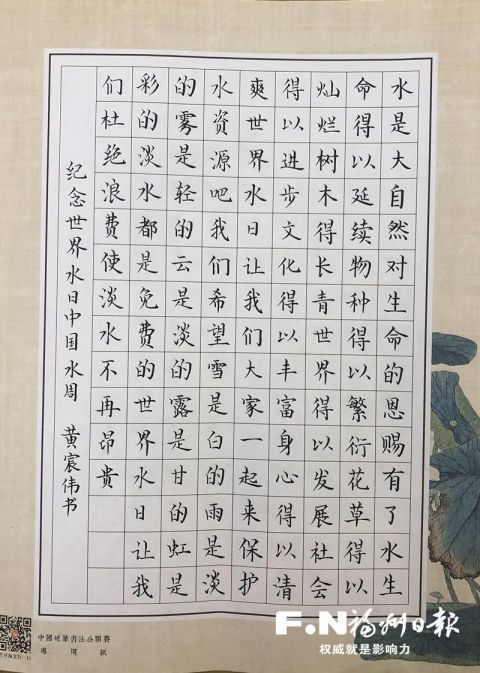 水是大自然对生命的恩赐有了水生
命得以延续物种得以繁衍花草得以
灿烂树木得长青世界得以发展社会
得以进步文化得以丰富身心得以清
爽世界水日让我们大家一起来保护
水资源吧我们希望雪是白的雨是淡
的雾是轻的云是淡的露是甘的虹是
彩的淡水都是免费的世界水日让我
们杜绝浪费使淡水不再昂贵
纪念世界水日中国水周 黄宸伟书
中國硬筆書法公開賽
專用紙
F.N福州日报
权威就是影响力